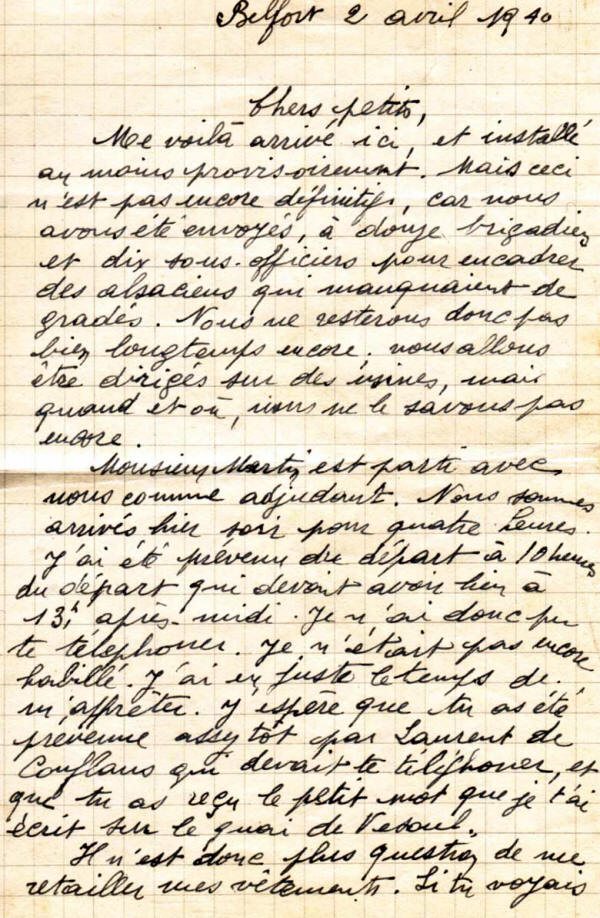 Belfort 2 avril 1940
Chers petits,
Me voilà arrivé ici, et installé
au moins provisoirement. Mais ceci
n'est pas encore définitif, car nous
avons été envoyés, à douze brigadiers
et dix sous-officiers pour encadrer
des alsaciens qui manquaient de
gradés. Nous ne resterons donc pas
bien longtemps encore. nous allons
être dirigés sur des usines, mais
quand et où, nous ne le savons pas
encore.
Monsieur Martin est parti avec
nous comme adjudant. Nous sommes
arrivés hier soir pour quatre heures.
J'ai été prévenu du départ à 10 heures
du départ qui devait avoir lieu à
13h après-midi. Je n'ai donc pu
te téléphoner. Je n'était pas encore
habillé. J'ai eu juste le temps de
m'affrêter. J'espère que tu as été
prévenue assez tôt par Laurent de
Conflans qui devait te téléphoner, et
que tu as reçu le petit mot que je t'ai
écrit sur le quai de Vesoul.
Il n'est donc plus question de me
retailler mes vêtements. Si tu voyais